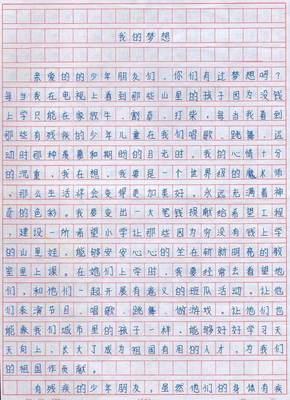 我的梦想
亲爱的的少年朋友们，你们有过梦想吗？
每当我在电视上看到那些山里的孩子因为没钱
上学只能在家放牛、割草、打柴，每当我看到
那些有残疾的少年儿童在我们唱歌、跳舞、运
动时那种羡慕和期盼的目光时，我的心情十分
的沉重，我在想，我要是一个世界级的魔术师，
那么生活将会变得更加美好，永远充满着神
奇的色彩。我要变出一大笔钱捐献给希望工程，
建设一所希望小学让那些因为穷没有钱上学
的山里娃，能够安安心心的坐在崭新明亮的教
室里上课。在她们上学时，我要经常去看望他
们，和他们一起开展有意义的班队活动。让他
们表演节目、唱歌、跳舞、做游戏。让他们也
能象我们城市里的孩子一样，能够好好学习天
天向上，长大了成为祖国有用的人才，为我们
的祖国作贡献。
有残疾的少年朋友，虽然他们的身体有疾